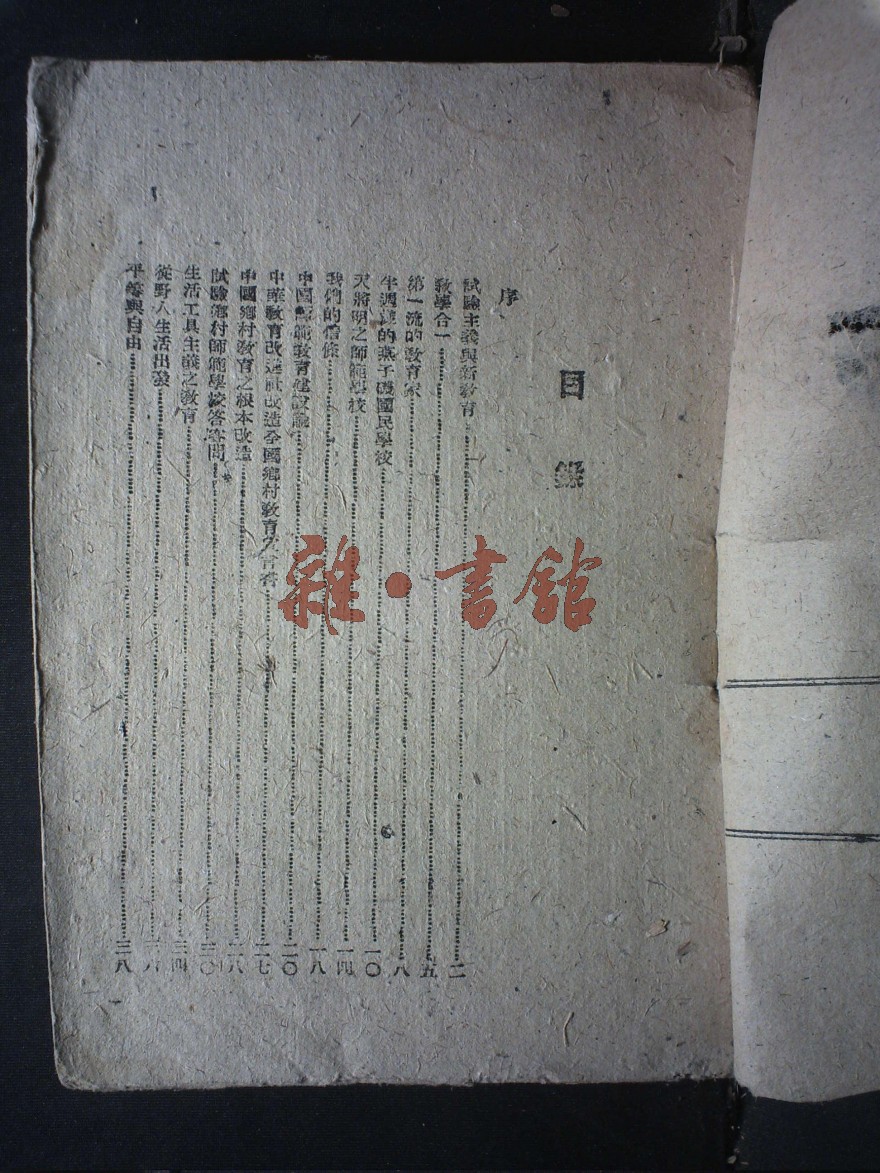 目錄
序
試驗主義與新教育……二
教學合一……五
第一流的教育家……八
半週歲的燕子磯國民學校……一〇
天將明之師範學校……一四
我們的信條……一八
中國師範教育建設論……二〇
中華教育改進社改造全國鄉村教育宣言書……二七
中國鄉村教育之根本改造……二八
試驗鄉村師範學校答客問……三〇
生活工具主義之教育……三四
從野人生活出發……三六
平等與自由……三八
雜·書館